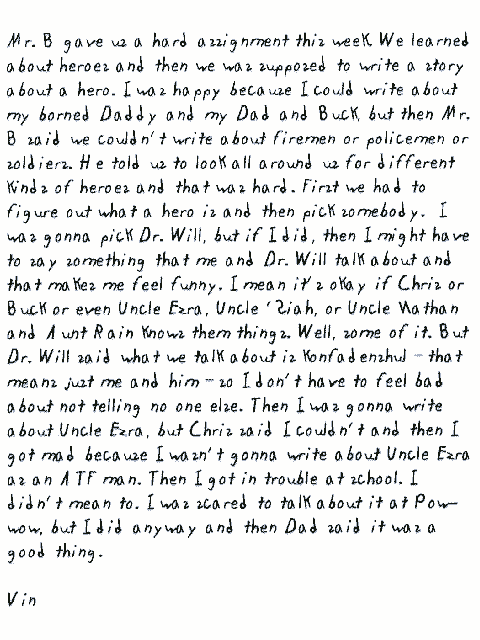 Mr. B gave us a hard assignment this week We learned
about heroes and then we was supposed to write a story
about a hero. I was happy because I could write about
my borned Daddy and my Dad and Buck, but then Mr.
B said we couldn't write about firemen or policemen or
soldiers. He told us to look all around us for different
kinds of heroes and that was hard. First we had to
figure out what a hero is and then pick somebody. I
was gonna pick Dr. Will, but if I did, then I might have
to say something that me and Dr. Will talk about and
that makes me feel funny. I mean it's okay if Chris or
Buck or even Uncle Ezra, Uncle 'Siah, or Uncle Nathan
and Aunt Rain knows them things. Well, some of it. But
Dr. Will said what we talk about is konfadenshul - that
means just me and him - so I don't have to feel bad
about not telling no one else. Then I was gonna write
about Uncle Ezra, but Chris said I couldn't and then I
got mad because I wasn't gonna write about Uncle Ezra
as an ATF man. Then I got in trouble at school. I
didn't mean to. I was scared to talk about it at Pow-
wow, but I did anyway and then Dad said it was a
good thing.
Vin